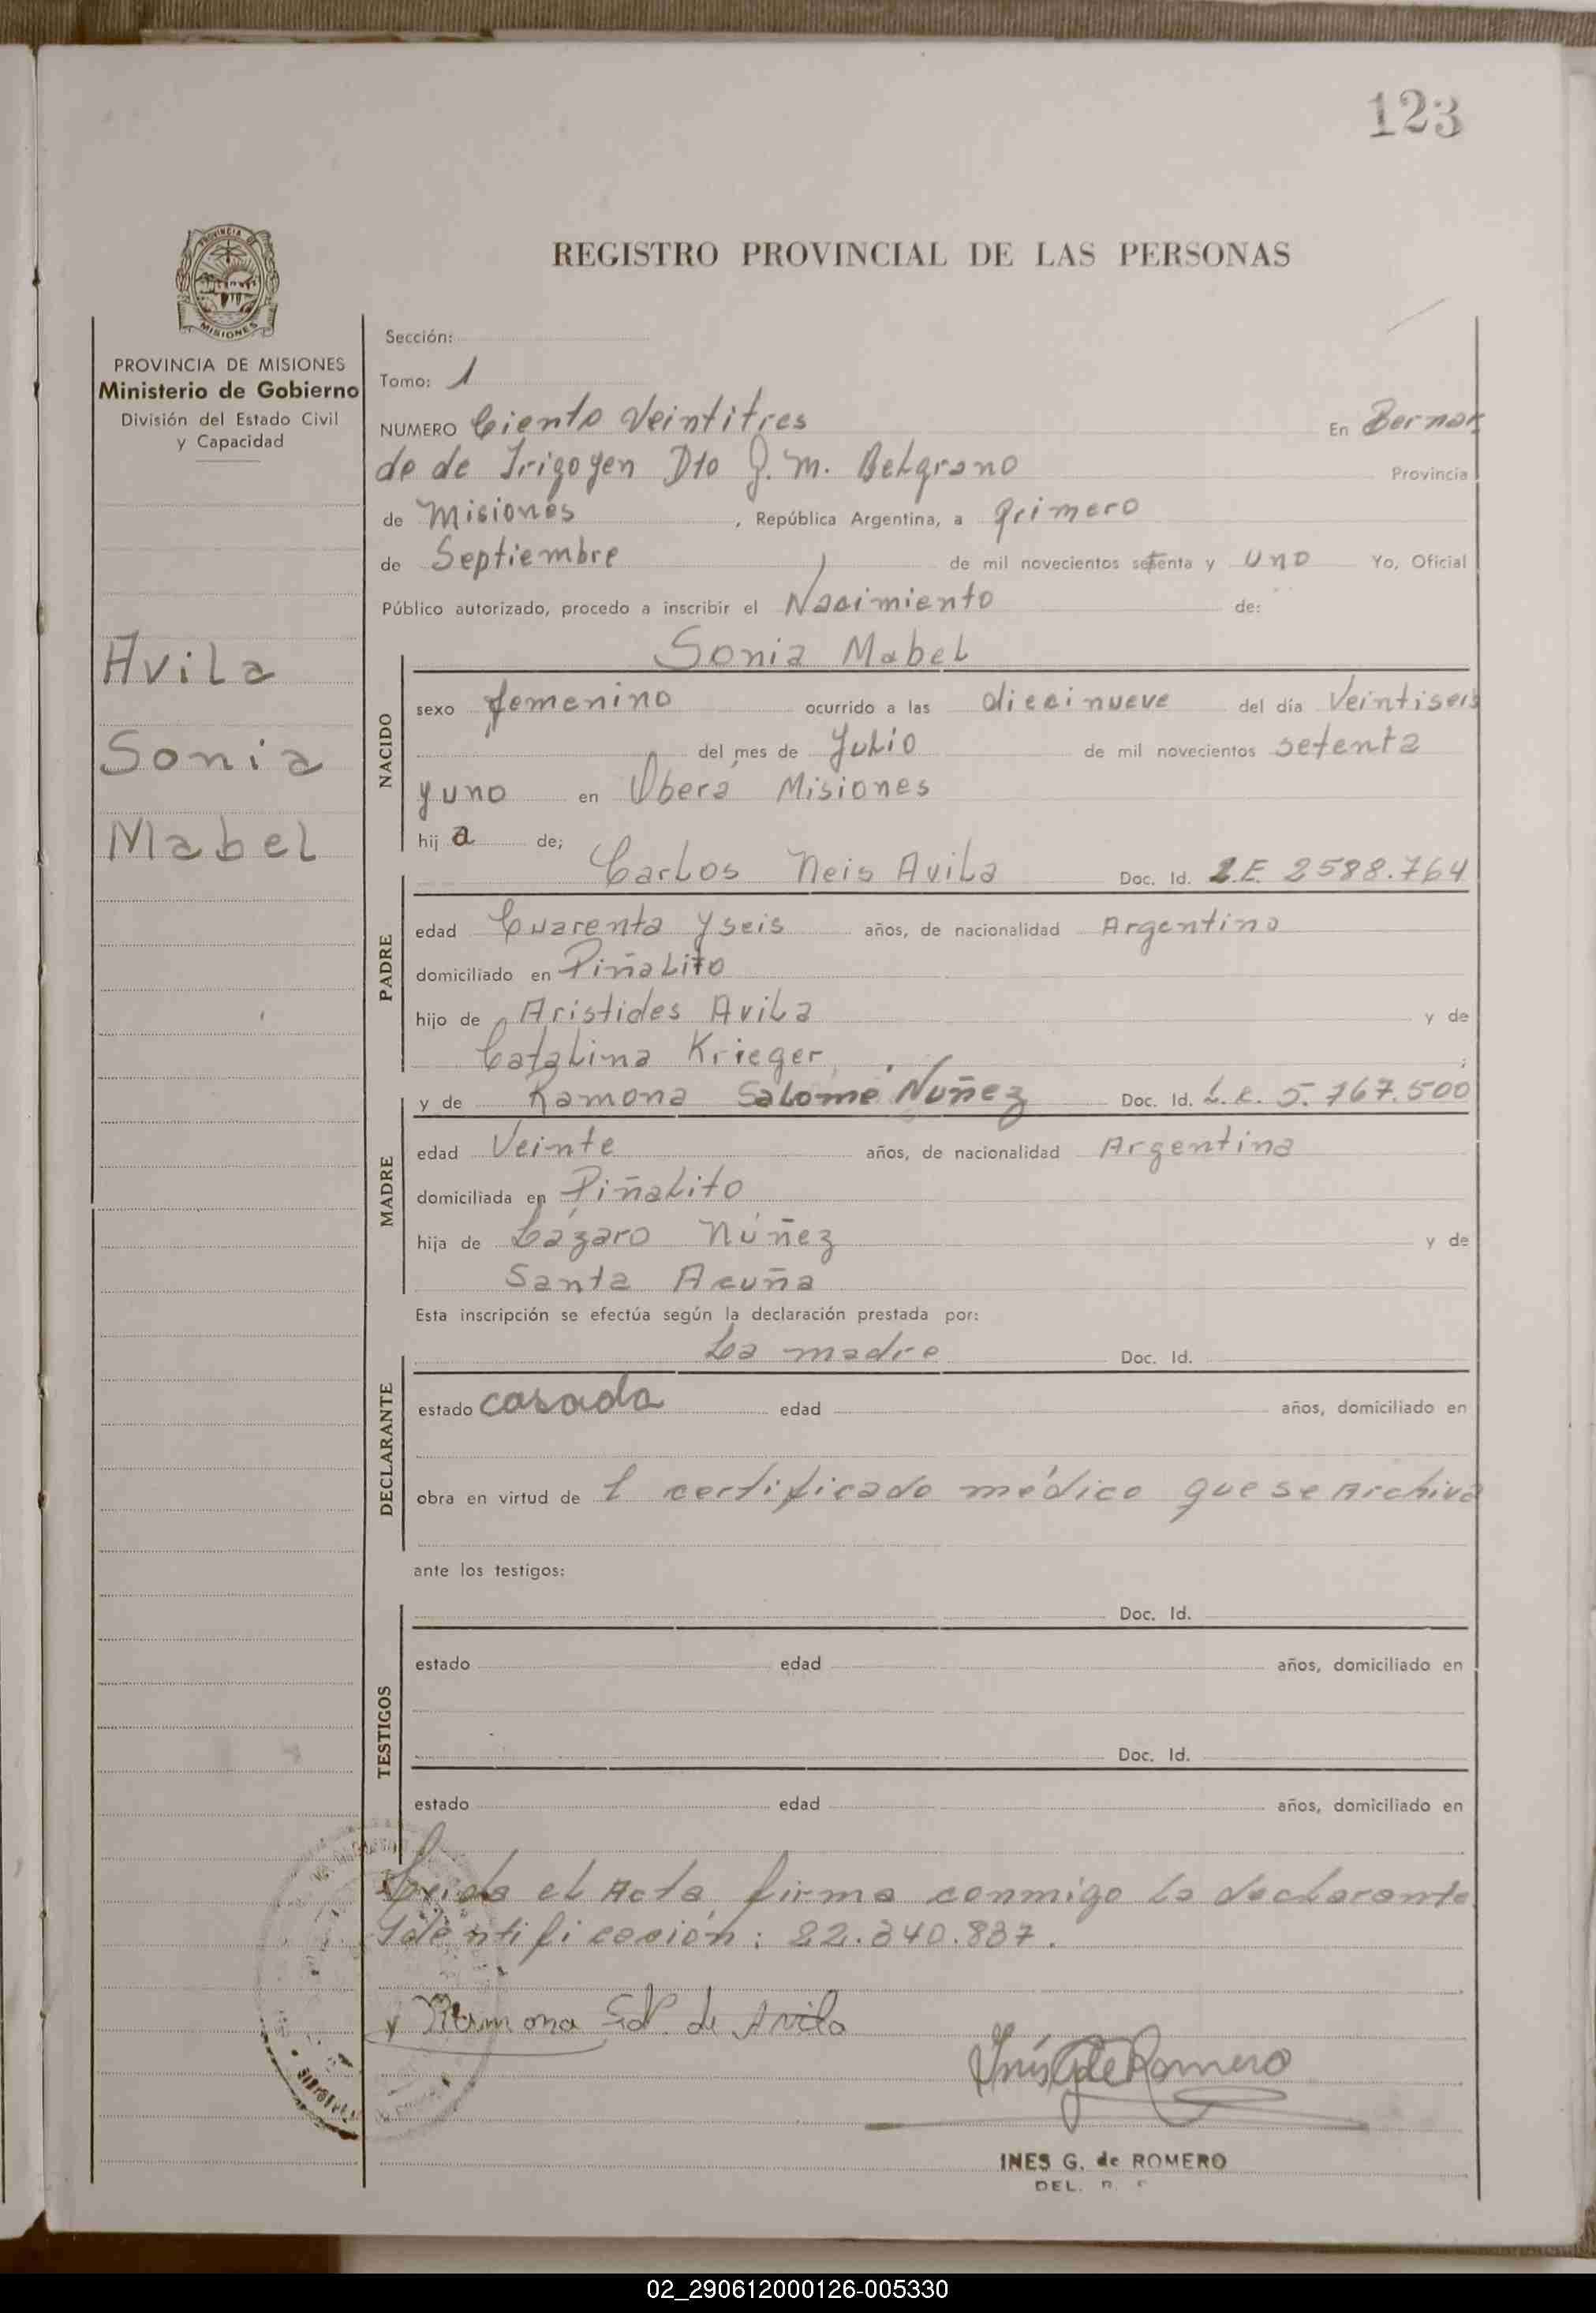 123
REGISTRO PROVINCIAL DE LAS PERSONAS
PROVINCIA DE MISIONES
Ministerio de Gobierno
División del Estado Civil
y Capacidad
Avila
Sonia
Mabel
Sección:
Tomo: 1
NUMERO Ciento Veintitres En Bernar
do de Irigoyen Dto G. M. Belgrano Provincia
de Misiones, República Argentina, a Primero
de Septiembre de mil novecientos setenta y uno Yo, Oficial
Público autorizado, procedo a inscribir el Nacimiento de:
Sonia Mabel
NACIDO
sexo femenino ocurrido a las diecinueve del día Veintiseis
del mes de Julio de mil novecientos setenta
y uno en Oberá Misiones
hija de;
Carlos Neis Avila Doc. Id. L.E. 2588.764
PADRE
edad Cuarenta y seis años, de nacionalidad Argentino
domiciliado en Piñalito
hijo de Aristides Avila y de
Catalina Krieger ;
y de Ramona Salomé Nuñez Doc. Id. L.C. 5.767.500
MADRE
edad Veinte años, de nacionalidad Argentina
domiciliada en Piñalito
hija de Lázaro Núñez y de
Santa Acuña
Esta inscripción se efectúa según la declaración prestada por:
La madre Doc. Id.
DECLARANTE
estado casada edad años, domiciliado en
obra en virtud de 1 certificado médico que se Archiva
ante los testigos:
Doc. Id.
TESTIGOS
estado edad años, domiciliado en
Doc. Id.
estado edad años, domiciliado en
Leida el Acta, firma conmigo la declarante.
Identificación: 22.340.837.
Ramona S. N. de Avila
Inés G de Romero
INES G. de ROMERO
DEL.
02_290612000126-005330